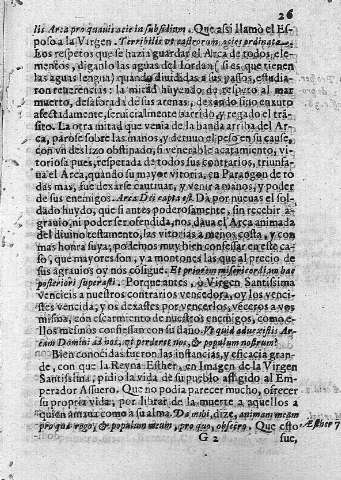 26
lis Arca pro quauis acie in subsidium. Que assi llamò el Es-
poso a la Virgen. Terribilis vt castrorum acies ordinata.
Los respetos que se hazia guardar el Arca de todos ele-
mentos, diganlo las aguas del Iordan (si es que tienen
las aguas lengua) quando diuididas a sus passos, estudia-
ron reuerencias: la mitad huyendo de respeto al mar
muerto, desaforada de sus arenas, dexando sino enxuto
afectadamente, seruicialmente barrido, y regado el trãs-
sito. La otra mitad que venia de la banda arriba del Ar-
ca, paròse sobre las manos, y detuuo el peso en su cause,
con vn deslizo obstinado, si venerable acatamiento, vi-
toriosa pues, respetada de todos sus contrarios, triunfa-
ua el Arca, quando su mayor vitoria, en Parangon de to
das mas, fue dexarse cautiuar, y venir a manos, y poder
de sus enemigos. Arca Dei capta est. Da por nuevas el sol-
dado huydo, que si antes poderosamente, sin recebir a-
grauio, ni poder ser ofendida, nos daua el Arca animada
del diuino testamento, las vitorias a menos costa, y con
mas honra suya; podemos muy bien confessar en este ca-
so, que mayores son, y a montones las que al precio de
sus agrauios oy nos cõsigue. Et priorem misericordiam hac
posteriori superasti. Porque antes, ò Virgen Santissima
venciais a nuestros contrarios vencedora, oy los vencis-
tes vencida, y os dexastes por vencerlos, veceros a vos
misma, con escarmiento de nuestros enemigos, como e-
llos mesmos confiessan con su daño. Vt quid aduxistis Ar-
cam Domini ad nos, vt perderet nos, & populum nostrum?
Bien conocidas fueron las instancias, y eficacia gran-
de, con que la Reyna Esther, en Imagen de la Virgen
Santissima, pidio la vida de su pueblo affligido al Em-
perador Assuero. Que no podia parecer mucho, ofrecer
su propria vida, por librar de la muerte a aquellos a
quien amaua como a su alma. Da mihi, dize, animam meam
pro qua rogo, & populum meum, pro quo, obsecro. Que esto
Æsther 7
G 2 fue,